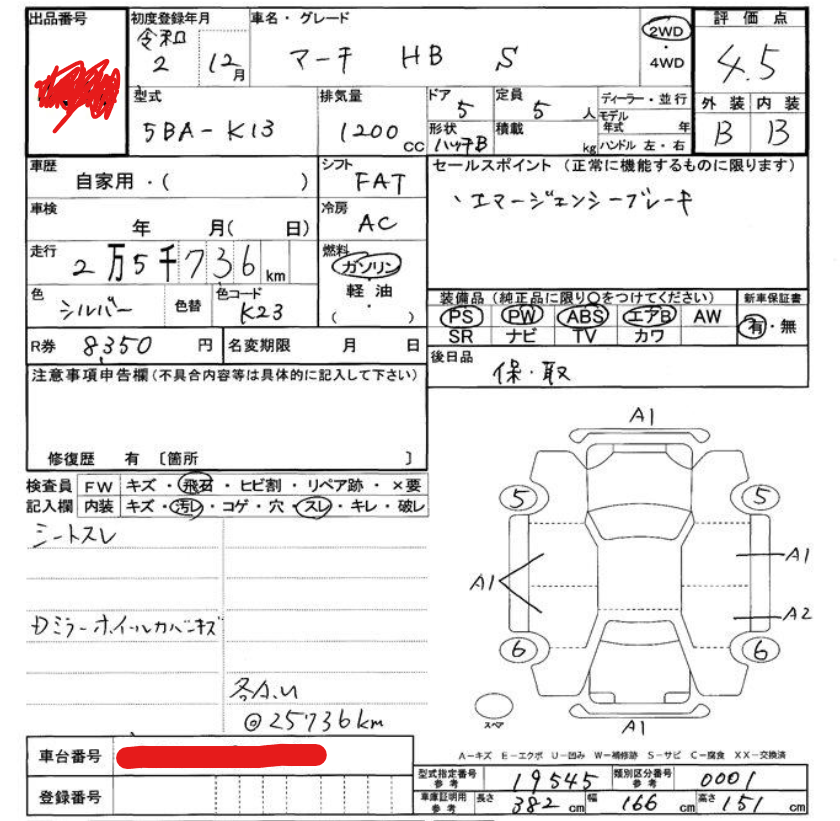 出品番号
初度登録年月 令和 2 12月
車名・グレード マーチ HB S
2WD・4WD
評価点 4.5
型式 5BA-K13
排気量 1200cc
ドア 5
定員 5人
ディーラー・並行
モデル年式 年
形状 ハッチB
積載 kg
ハンドル 左・右
外装 内装
B B
車歴 自家用・( )
シフト FAT
セールスポイント (正常に機能するものに限ります)
、エマージェンシーブレーキ
車検 年 月( 日)
冷房 AC
走行 2万5千736km
燃料 ガソリン・軽油・( )
色 シルバー
色替
色コード K23
装備品 (純正品に限り○をつけてください)
新車保証書
PS PW ABS エアB AW
SR ナビ TV カワ
有・無
R券 8,350円
名変期限 月 日
後日品 保・取
注意事項申告欄 (不具合内容等は具体的に記入して下さい)
修復歴 有 〔箇所 〕
検査員記入欄
FW キズ・飛石・ヒビ割・リペア跡・×要
内装 キズ・汚レ・コゲ・穴・スレ・キレ・破レ
シートスレ
Dミラーホイールカバーキズ
@25736km
A1
5 5
A1 A1
A2
6 6
スペア
A1
A-キズ E-エクボ U-凹み W-補修跡 S-サビ C-腐食 XX-交換済
車台番号
登録番号
型式指定番号 参考 19545
類別区分番号 参考 0001
車庫証明用 参考 長さ 382cm 幅 166cm 高さ 151cm